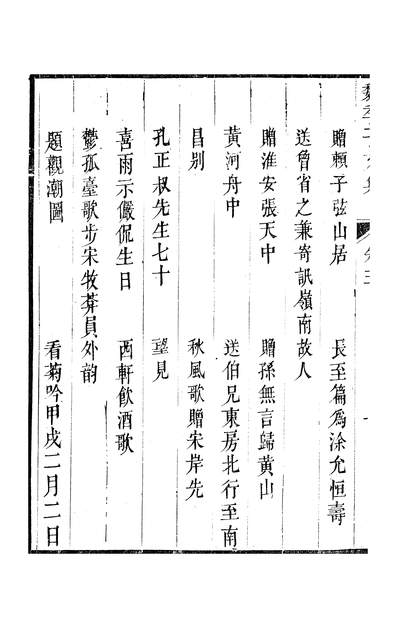 贈賴子弦山居　長至篇為涂允恒壽
送曾省之兼寄訊嶺南故人
贈淮安張天中　贈孫無言歸黄山
黄河舟中　送伯兄東房北行至南
昌别　秋風歌贈宋岸先
孔正叔先生七十　望見
喜雨示儼侃生日　西軒飲酒歌
鬱孤臺歌步宋牧莽員外韵
題觀潮圖　看菊吟甲戌二月二日